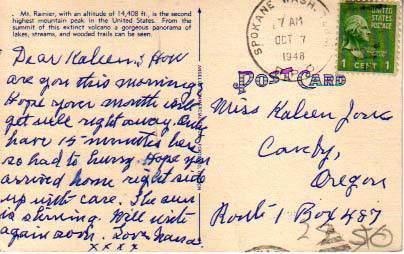 Mt. Rainier, with an altitude of 14,408 ft., is the second
highest mountain peak in the United States. From the
summit of this extinct volcano a gorgeous panorama of
lakes, streams, and wooded trails can be seen.
Dear Kaleen, How
are you this morning?
Hope your mouth will
get well right away. Only
have 15 minutes here
so had to hurry. Hope you
arrived home right side
up with care. The sun
is shining. Will write
again soon. Love
x x x x
SPOKANE WASH.
7 AM
OCT 7
1948
1 CENT 1
POST CARD
Miss Kaleen
Canby,
Oregon
Route 1 Box 487